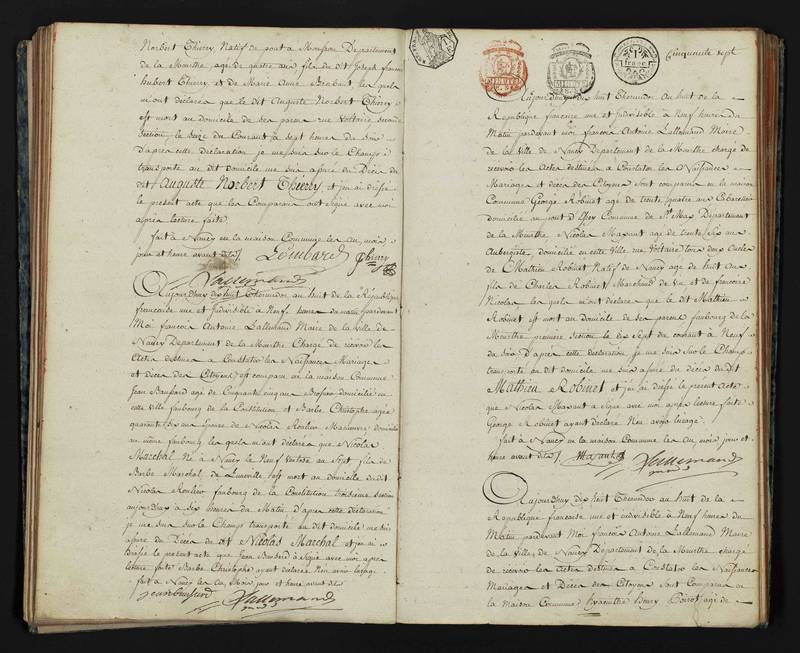 Norbert Thiery Natif de pont a Mousson Departement
de la Meurthe, agé de quatre ans fils de dit Joseph francois
hubert Thiery, et de Marie Anne les quels
m'ont déclaréa que le dit Auguste Norbert Thiery
est mort au domicile de ses parens rue Voltaire seconde
Section, le seize du Courant a sept heures du Soir
D'après cette déclaration je me suis sur le Champ
transporté au dit domicile me suis assuré du Décès du
dit Auguste Norbert Thiery, et j'ai dressé
le present acte que les Comparans ont Signé avec moi
après lecture faite.
fait à Nancy en la maison Commune les an, mois
jour et heure avant dits
Lombard Thiery
Lallemand
Aujourdhuy dix huit Thermidor an huit de la République
francaise une et Indivisible à Neuf heures du matin pardevant
Moi francois Antoine Lallemand Maire de la Ville de
Nancy Departement de la Meurthe Chargé de recevoir les
Actes destinés a Constater les Naissances Mariages
et Décès des Citoyens est comparu en la maison Commune
Jean agé de Cinquante cinq ans Brossier domicilié en
cette ville faubourg de la Constitution et Barbe Christophe agée
quarante dix ans Epouse de Nicolas Roulier Maneuvre domicilié
au même faubourg les quels m'ont déclaréa que Nicolas
Marchal Né à Nancy le Neuf ventose an Sept fils de
Barbe Marchal de Luneville est mort au domicile du dit
Nicolas Roulier faubourg de la Constitution troisieme Section
aujourdhuy à Six heures du Matin D'après cette déclaration
je me suis sur le Champ transporté au dit domicile me suis
assuré du Décès du dit Nicolas Marchal et j'ai
Dressé le present acte que Jean a Signé avec moi après
lecture faite Barbe Christophe ayant déclaréa Non avoir l'usage
fait à Nancy les an Mois jour et heure avant dits
Lallemand
Cinquante sept
MINUTE
1 franc
Aujourdhuy dix huit Thermidor an huit de la
Republique francoise une et Indivisible, à Neuf heures du
Matin pardevant moi francois Antoine Lallemand Maire
de la Ville de Nancy Departement de la Meurthe chargé de
recevoir les Actes destinés a Constater les Naissances
Mariages et décès des Citoyens Sont comparus en la maison
Commune George Robinet agé de trente quatre ans Cabaretier
domicilié au pont d'Essey Commune de St Max Departement
de la Meurthe, Nicolas Massant agé de trente six ans
Aubergiste, domicilié en cette Ville rue Voltaire tous deux Oncles
de Mathieu Robinet Natif de Nancy agé de huit ans
fils de Charles Robinet Marchand de Vin et de francoise
Nicolas les quels m'ont déclaré que le dit Mathieu
Robinet est mort au domicile de ses parens faubourg de la
Meurthe premiere Section le dix Sept du courant à Neuf
du Soir D'après cette déclaration je me suis sur le Champ
transporté au dit domicile me suis assuré du décès du dit
Mathieu Robinet et j'ai dressé le present Acte
que Nicolas Massant a Signé avec moi après lecture faite
George Robinet ayant declaré Non avoir l'usage
fait à Nancy en la maison Commune les an, mois jour et
heure avant dits
Lallemand
Aujourdhuy dix huit Thermidor an huit de la
Republique francoise une et indivisible à Neuf heures du
Matin pardevant Moi francois Antoine Lallemand Maire
de la Ville de Nancy Departement de la Meurthe chargé
de recevoir les Actes destinés a Constater les Naissances
Mariages et Décès des Citoyens Sont Comparus en
la Maison Commune Hyacinthe Henry Poirot agé de